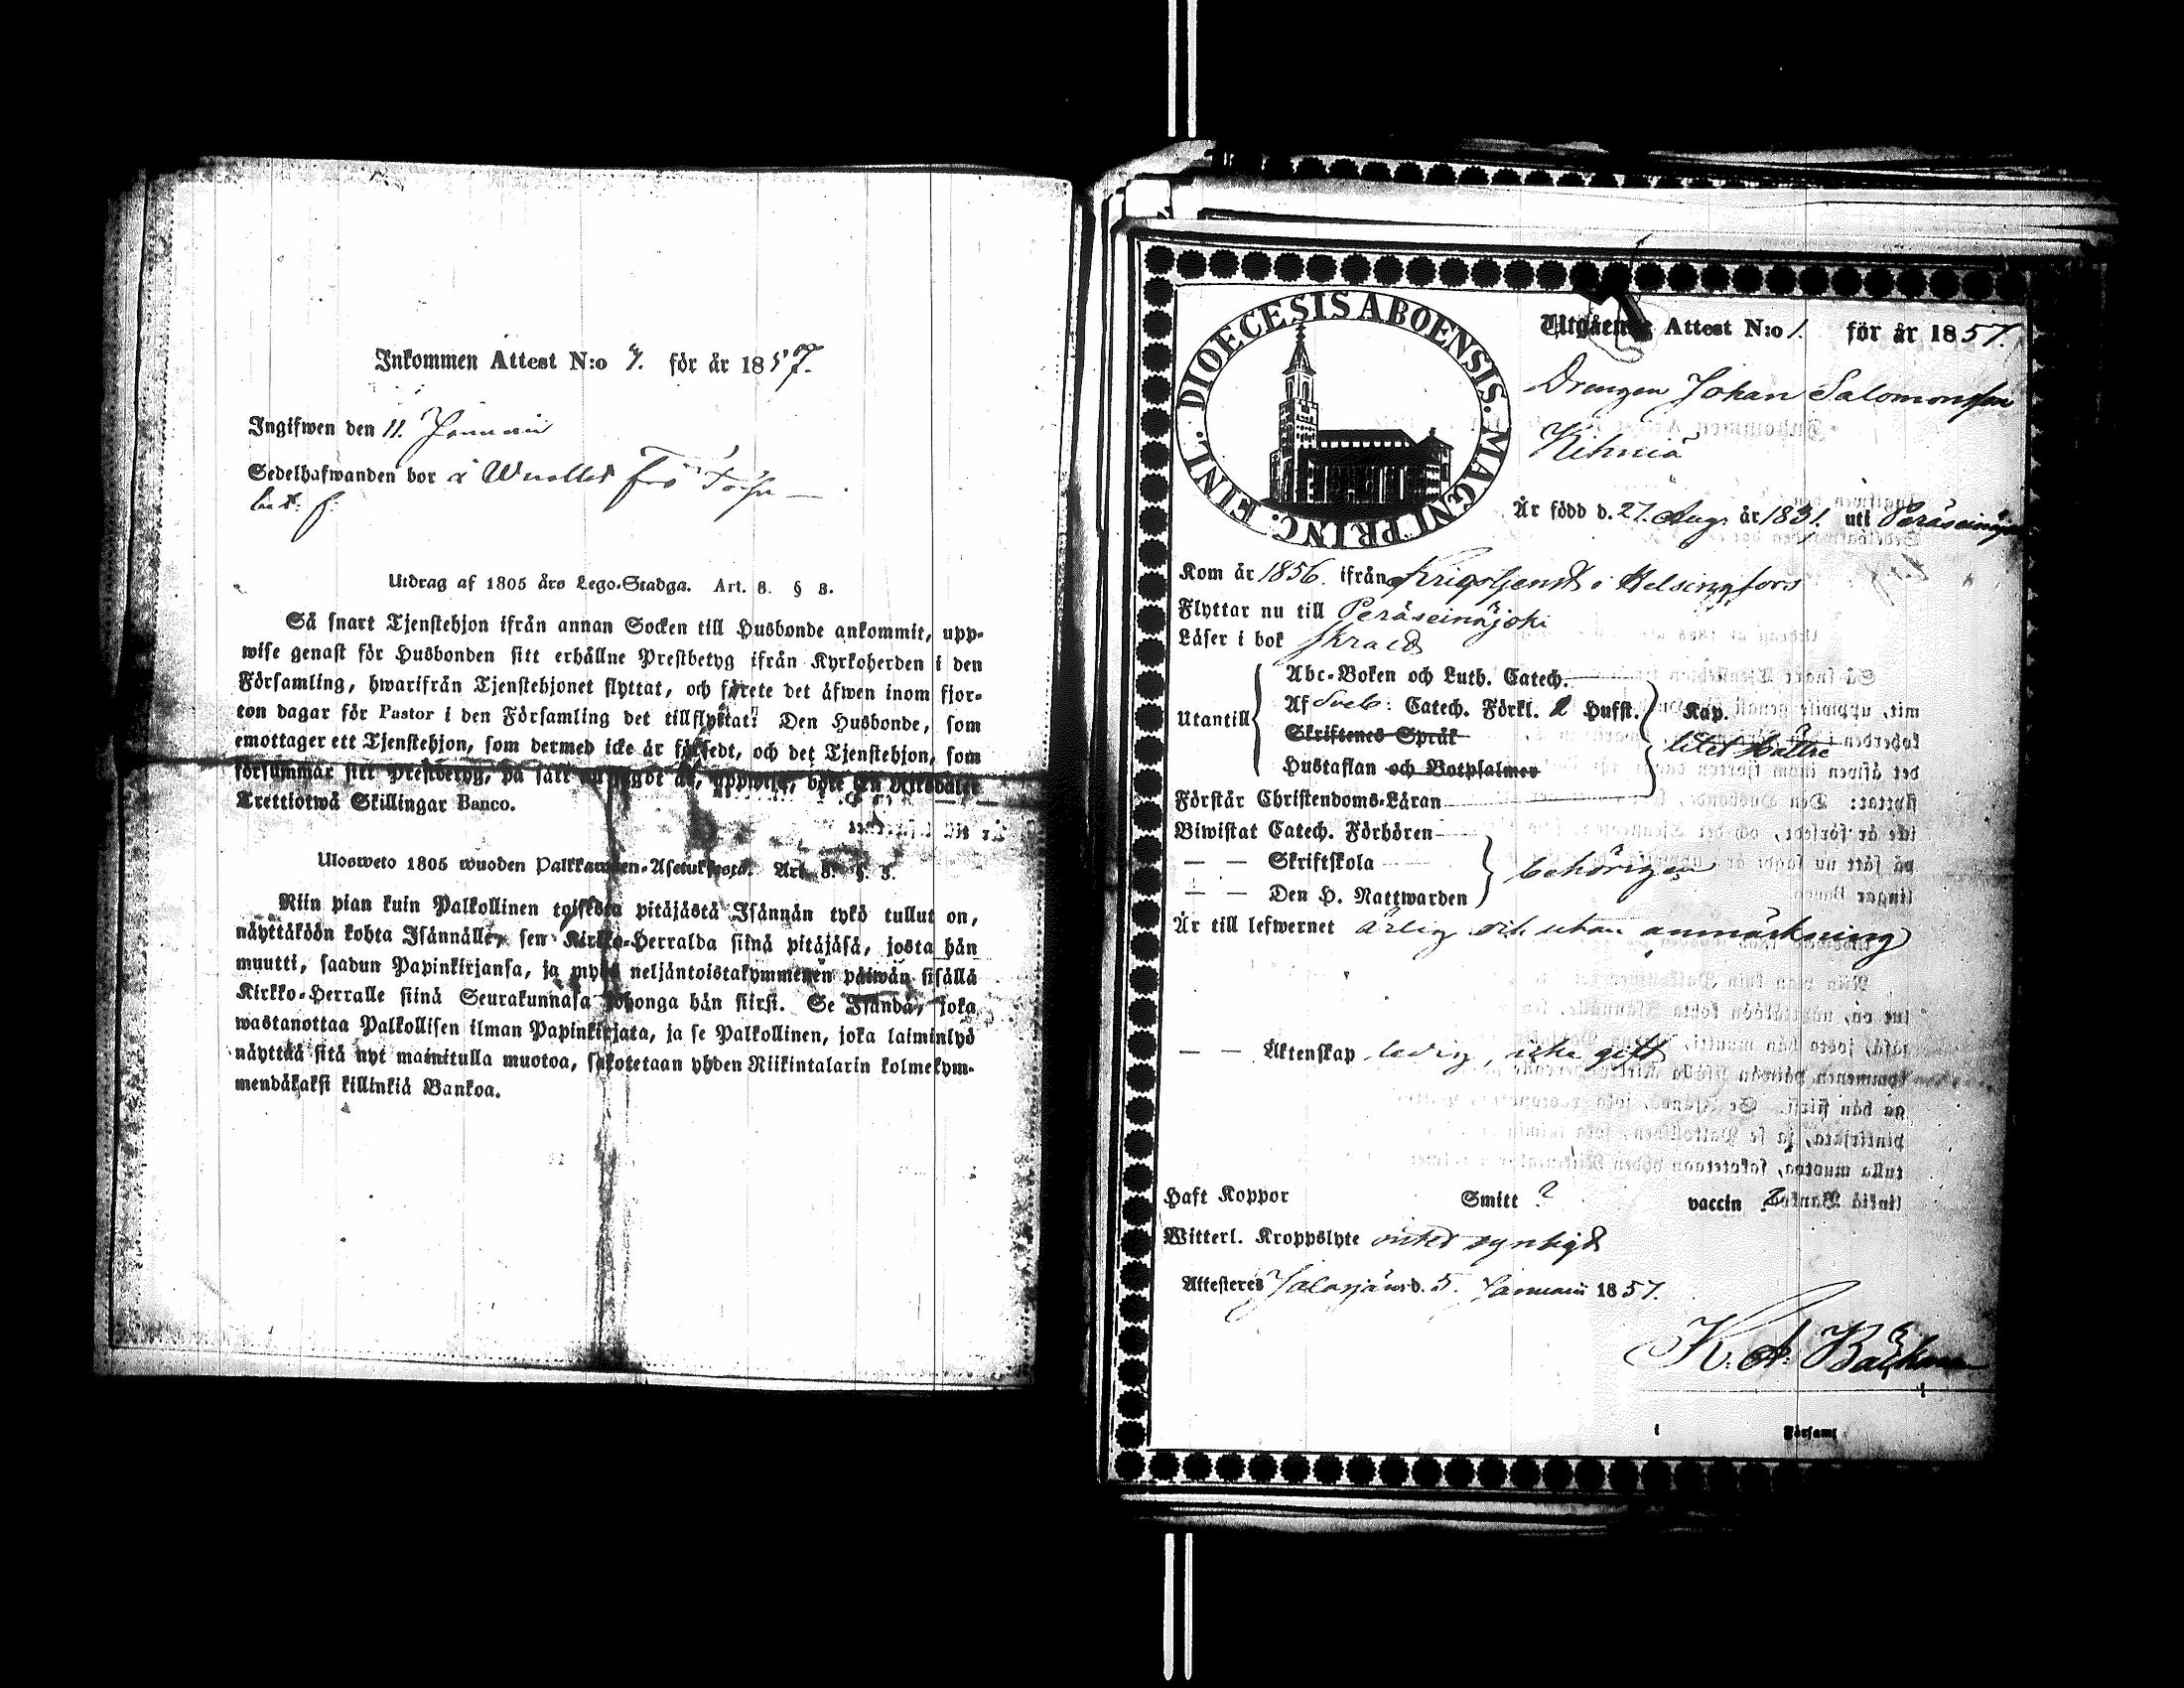 Inkommen Attest N:o 7. för år 1857.
Ingifwen den 11. Januarii
Sedelhafwanden bor å
Utdrag af 1805 års Lego-Stadga. Art. 8. § 3.
Så snart Tjenstehjon ifrån annan Socken till Husbonde ankommit, upp-
wise genast för Husbonden sitt erhållne Prestbetyg ifrån Kyrkoherden i den
Församling, hwarifrån Tjenstehjonet flyttat, och förete det äfwen inom fjor-
ton dagar för Pastor i den Församling det tillflyttat: Den Husbonde, som
emottager ett Tjenstehjon, som dermed icke är försedt, och det Tjenstehjon, som
försummar sitt Prestbetyg, på sätt nu sagdt är, uppwisa, böte en Riksdaler
Trettiotwå Skillingar Banco.
Ulosweto 1805 wuoden Palkkawäen-Asetuksesta. Art. 8. §. 3.
Niin pian kuin Palkollinen toisesta pitäjästä Isännän tykö tullut on,
näyttäköön kohta Isännälle, sen Kirkko-Herralda siinä pitäjäsä, josta hän
muutti, saadun Papinkirjansa, ja myös neljäntoistakymmenen päiwän sisällä
Kirkko-Herralle siinä Seurakunnasa johonga hän siirsi. Se Isändä, joka
wastanottaa Palkollisen ilman Papinkirjata, ja se Palkollinen, joka laiminlyö
näyttää sitä nyt mainitulla muotoa, sakotetaan yhden Riikintalarin kolmekym-
mendäkaksi killinkiä Bankoa.
DIOECESIS ABOENSIS. MAGNI PRINC. FINL.
Utgående Attest N:o 1. för år 1857.
Drengen Johan Salomonsson
Kihniä
Är född d. 27. Aug. år 1831. uti Peräseinäjoki
Kom år 1856. ifrån Krigstjenst i Helsingfors
Flyttar nu till Peräseinäjoki
Läser i bok
Utantill
Abc-Boken och Luth. Catech.
Af Sveb: Catech. Förkl. 2 Hufst. Kap.
Skriftenes Språk litet bättre
Hustaflan och Botpsalmer
Förstår Christendoms-Läran
Biwistat Catech. Förhören
— — Skriftskola behörigen
— — Den H. Nattwarden
Är till lefwernet ärlig och utan anmärkning
— — Äktenskap ledig, icke gift
Haft Koppor Smitt ? vaccin ?
Witterl. Kroppslyte intet synligt
Attesteres Jalasjärvi d. 5. Januarii 1857.
K. A. Bäckman
i Församl